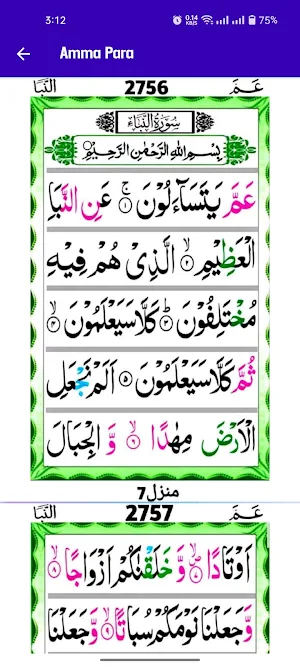 3:12 0.14 KB/S 75%
Amma Para
النَّبَا 2756 عَمَّ
سُوْرَةُ النَّبَاءِ
بِسْمِ اللّٰهِ الرَّحْمٰنِ الرَّحِيْمِ
عَمَّ يَتَسَآءَلُوْنَ ۚ﴿۱﴾ عَنِ النَّبَاِ
الْعَظِيْمِ ۙ﴿۲﴾ الَّذِىْ هُمْ فِيْهِ
مُخْتَلِفُوْنَ ؕ﴿۳﴾ كَلَّا سَيَعْلَمُوْنَ ۙ﴿۴﴾
ثُمَّ كَلَّا سَيَعْلَمُوْنَ ﴿۵﴾ اَلَمْ نَجْعَلِ
الْاَرْضَ مِهٰدًا ۙ﴿۶﴾ وَّ الْجِبَالَ
منزل 7
النَّبَا 2757 عَمَّ
اَوْتَادًا ۪ۙ﴿۷﴾ وَّ خَلَقْنٰكُمْ اَزْوَاجًا ۙ﴿۸﴾
وَّ جَعَلْنَا نَوْمَكُمْ سُبَاتًا ۙ﴿۹﴾ وَّ جَعَلْنَا